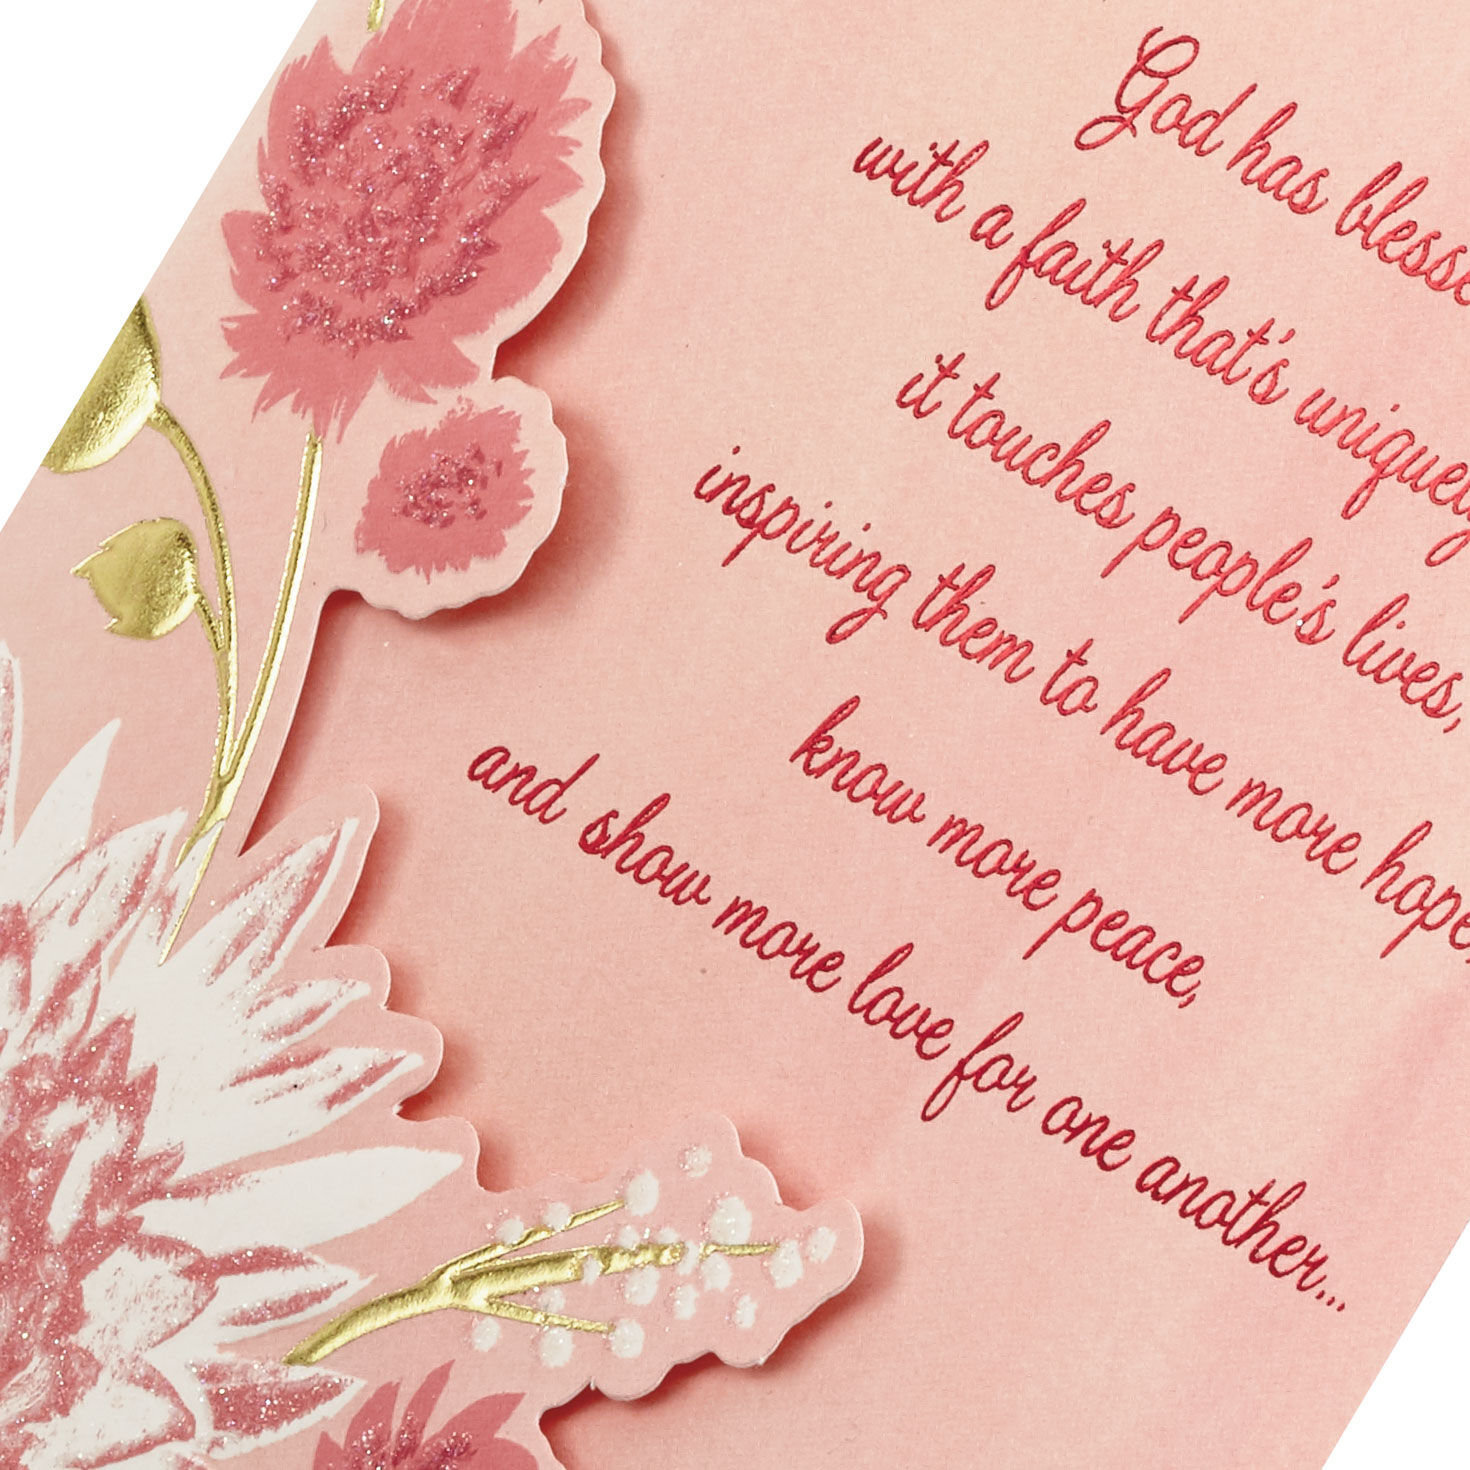 God has blesse
with a faith that's uniquely
it touches people's lives,
inspiring them to have more hope,
know more peace,
and show more love for one another...